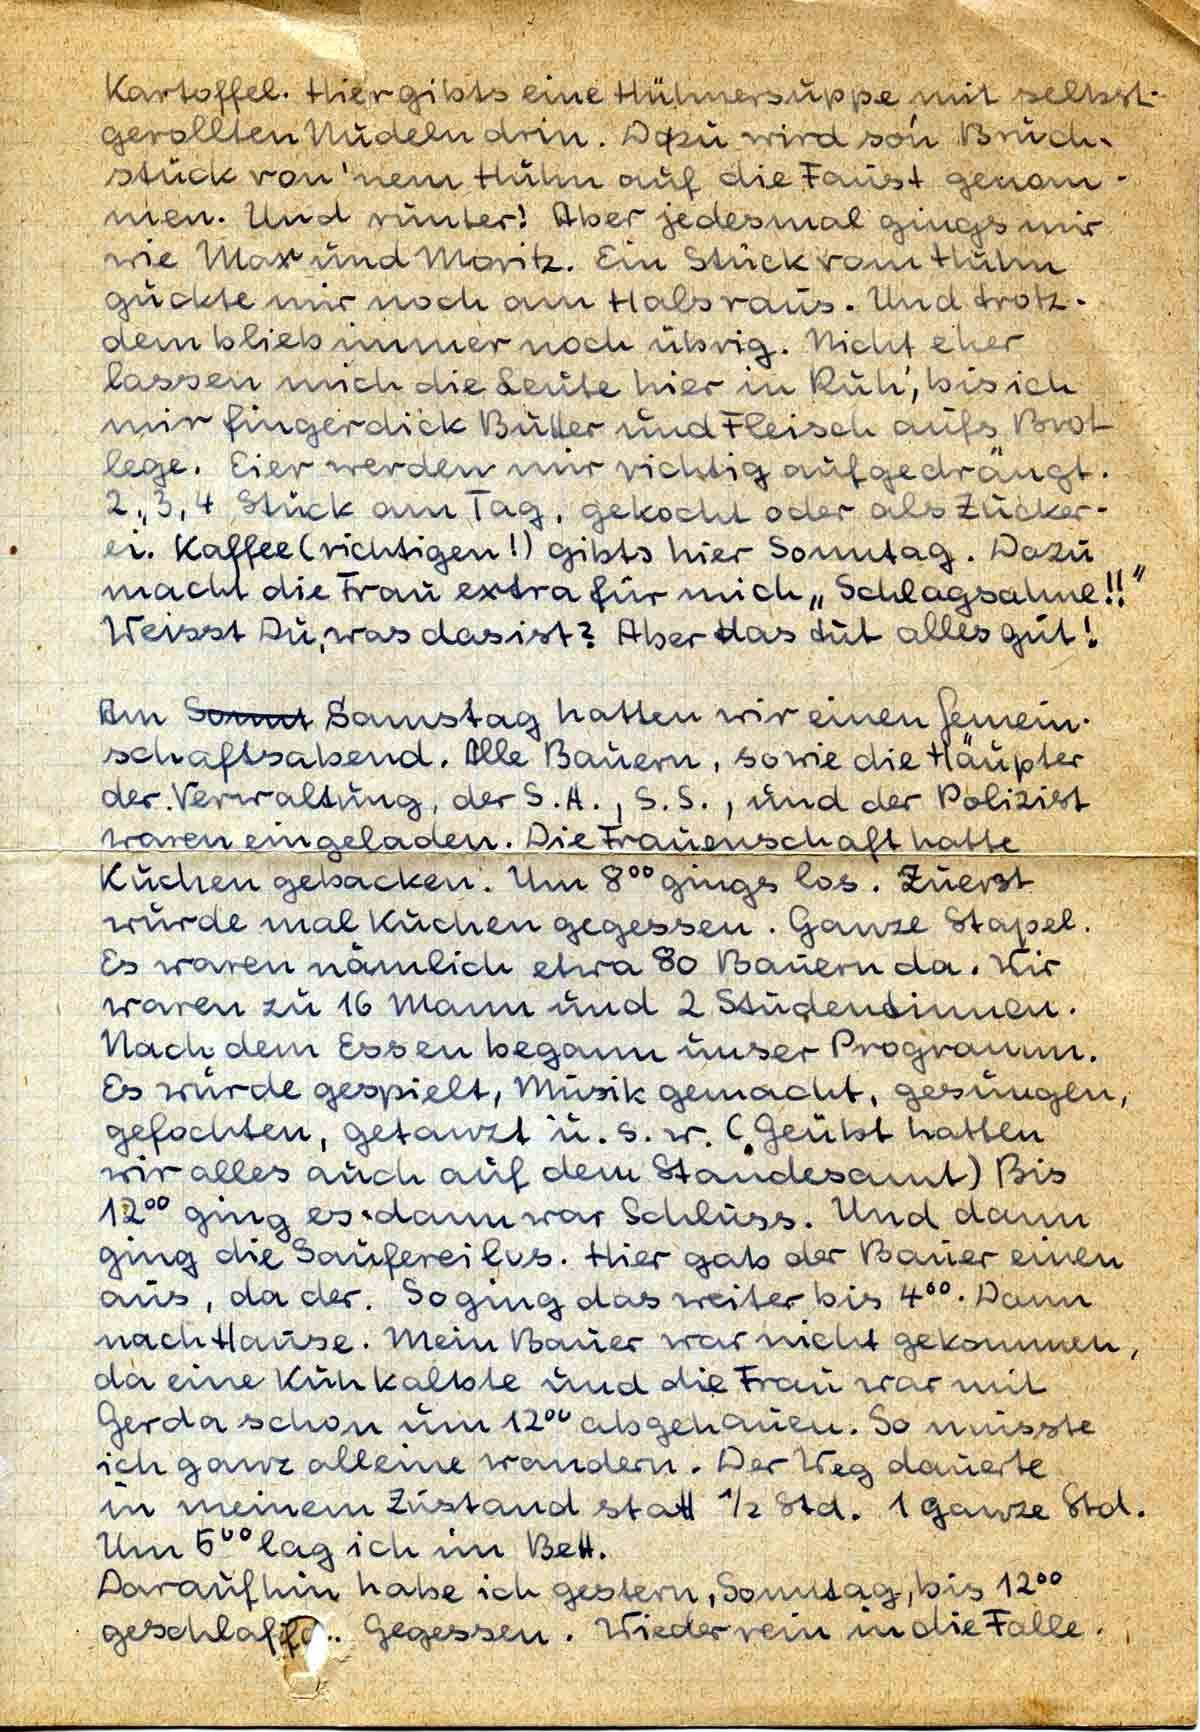 Kartoffel. Hier gibts eine Hühnersuppe mit selbst-
gerollten Nudeln drin. Dazu wird so'n Bruch-
stück von 'nem Huhn auf die Faust genom-
men. Und runter! Aber jedesmal gings mir
wie Max und Moritz. Ein Stück vom Huhn
guckte mir noch am Hals raus. Und trotz-
dem blieb immer noch übrig. Nicht eher
lassen mich die Leute hier in Ruh', bis ich
mir fingerdick Butter und Fleisch aufs Brot
lege. Eier werden mir richtig aufgedrängt.
2, 3, 4 Stück am Tag, gekocht oder als Zucker-
ei. Kaffee (richtigen!) gibts hier Sonntag. Dazu
macht die Frau extra für mich „Schlagsahne!!"
Weisst Du, was das ist? Aber das tut alles gut!
Am Sonnt Samstag hatten wir einen Gemein-
schaftsabend. Alle Bauern, sowie die Häupter
der Verwaltung, der S.A., S.S., und der Polizist
waren eingeladen. Die Frauenschaft hatte
Kuchen gebacken. Um 8⁰⁰ gings los. Zuerst
wurde mal Kuchen gegessen. Ganze Stapel.
Es waren nämlich etwa 80 Bauern da. Wir
waren zu 16 Mann und 2 Studentinnen.
Nach dem Essen begann unser Programm.
Es wurde gespielt, Musik gemacht, gesungen,
gefochten, getanzt u.s.w. (Geübt hatten
wir alles auch auf dem Standesamt) Bis
12⁰⁰ ging es. dann war Schluss. Und dann
ging die Sauferei los. Hier gab der Bauer einen
aus, da der. So ging das weiter bis 4⁰⁰. Dann
nach Hause. Mein Bauer war nicht gekommen,
da eine Kuh kalbte und die Frau war mit
Gerda schon um 12⁰⁰ abgehauen. So musste
ich ganz alleine wandern. Der Weg dauerte
in meinem Zustand statt ½ Std. 1 ganze Std.
Um 5⁰⁰ lag ich im Bett.
Daraufhin habe ich gestern, Sonntag, bis 12⁰⁰
Gegessen. Wieder rein in die Falle.